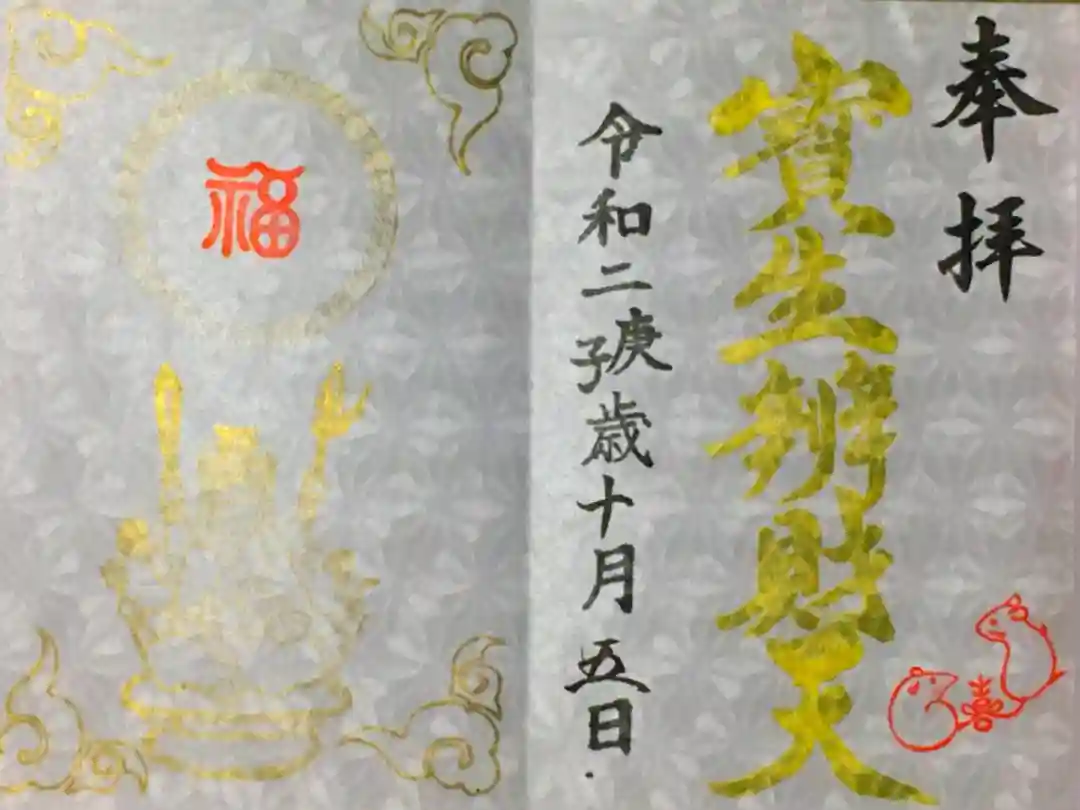 奉拝
寳生辨財天
令和二庚子歳十月五日
福
喜